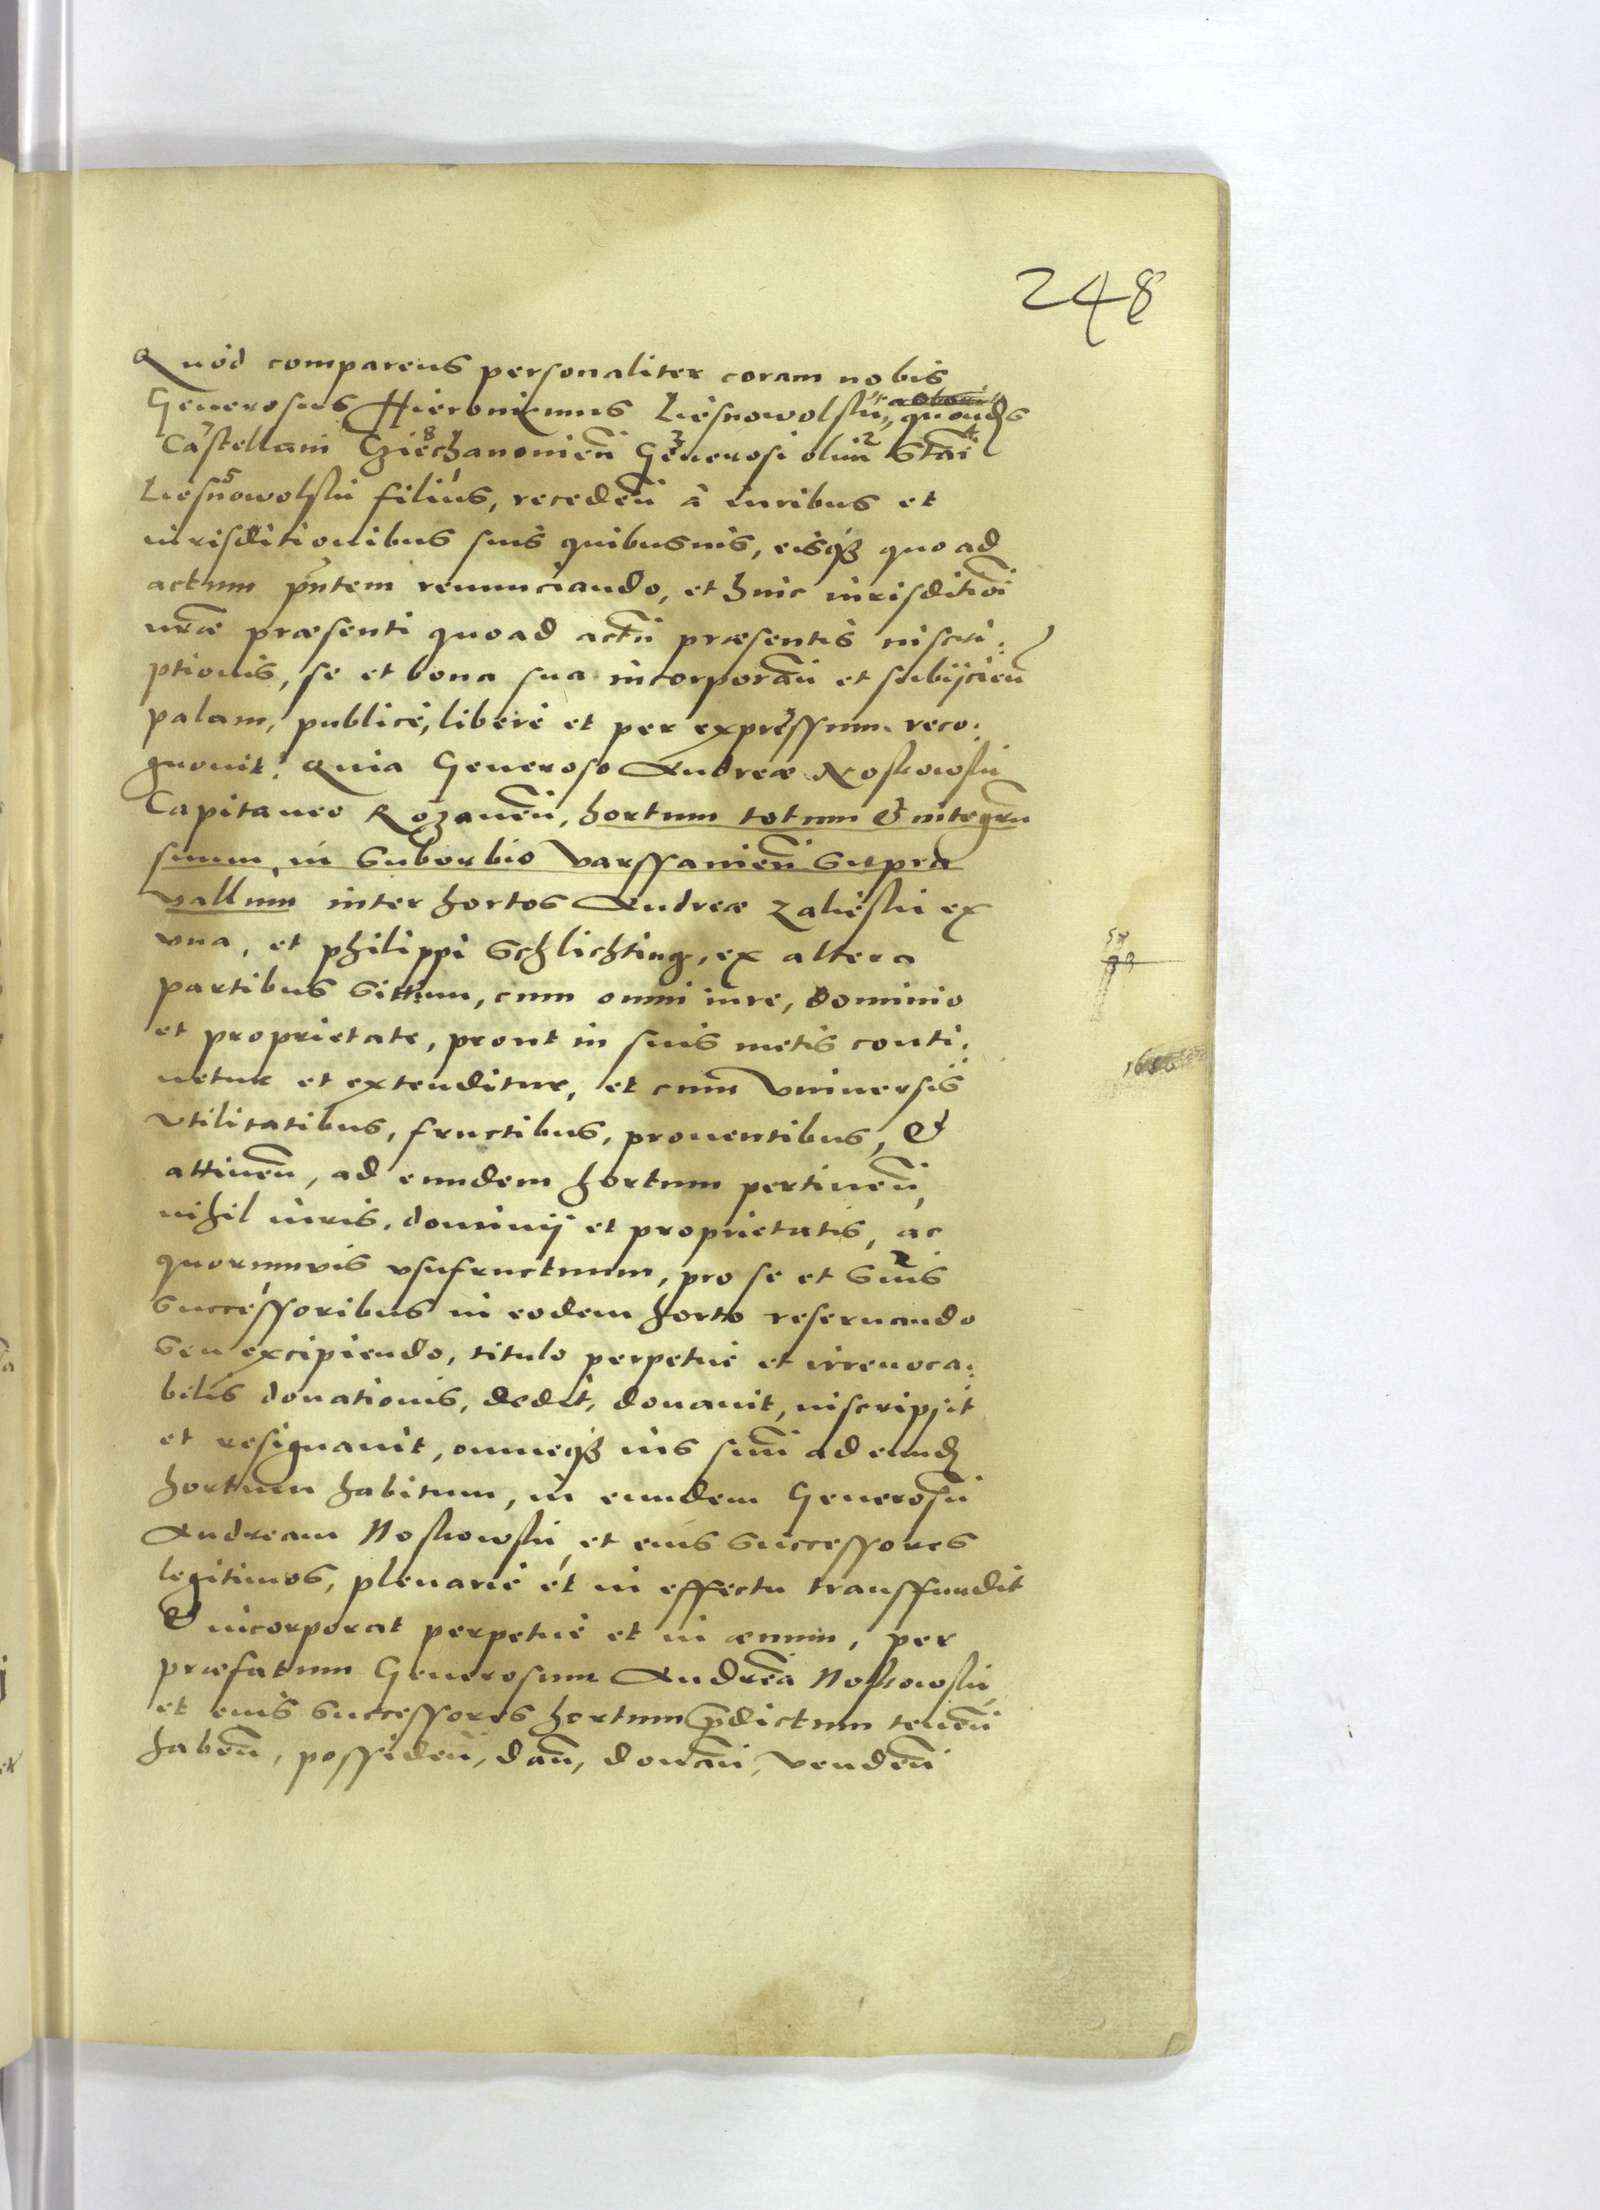 248
Quod comparens personaliter coram nobis
Generosus Hieronimus Liesnowolskij, quonda
Castellani Cziechanonien̄ Generosi olim Stāi
Liesnowolskij filius, receden̄ à iuribus et
iurisditionibus suis quibusuis, eisqȝ quo ad
actum pn̄tem renunciando, et huic iurisditiōi
nr̄æ præsenti quoad actū præsentis inscri:
ptionis, se et bona sua incorporan̄ et subijcien̄
palam, publicè, liberè et per expressum reco:
gnouit: Quia Generoso Andreæ Noskowskij
Capitaneo Rozanen̄, hortum totum & integrū
suum, in Suborbio Varssauien̄ Supra
vallum inter hortos Andreæ Zalieskij ex
vna, et Philippi Schlichting, ex altera
partibus Sittum, cum omni iure, dominio
et proprietate, prout in suis metis conti:
netur et extenditur, et cum Vniuersis
Vtilitatibus, fructibus, prouentibus, &
attinen̄, ad eundem hortum pertinen̄,
nihil iuris, dominij et proprietatis, ac
quorumuis vsufructuum, pro se et Suis
Successoribus in eodem horto reseruando
Seu excipiendo, titulo perpetuè et irreuoca:
bilis donationis, dedit, donauit, inscripsit
et resignauit, omneqȝ ius suū ad eund
hortum habitum, in eundem Generosū
Andream Noskowskij, et eius Successores
legitimos, plenariè et in effectu transffundit
& incorporat perpetuè et in æuum, per
præfatum Generosum Andreā Noskowskij
et eius Successores hortum p̄dictum tenen̄
haben̄, possiden̄, dan̄, donan̄, venden̄